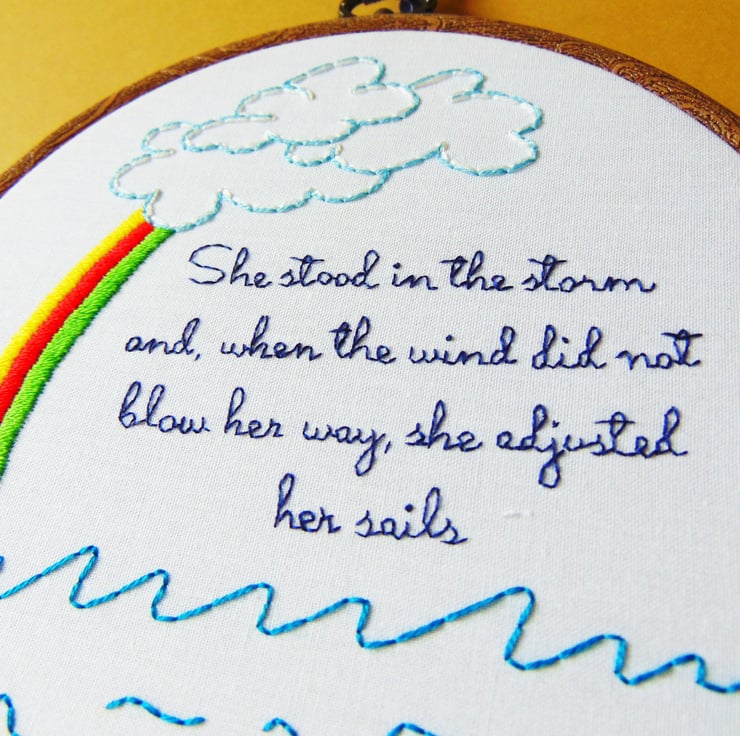 She stood in the storm
and, when the wind did not
blow her way, she adjusted
her sails